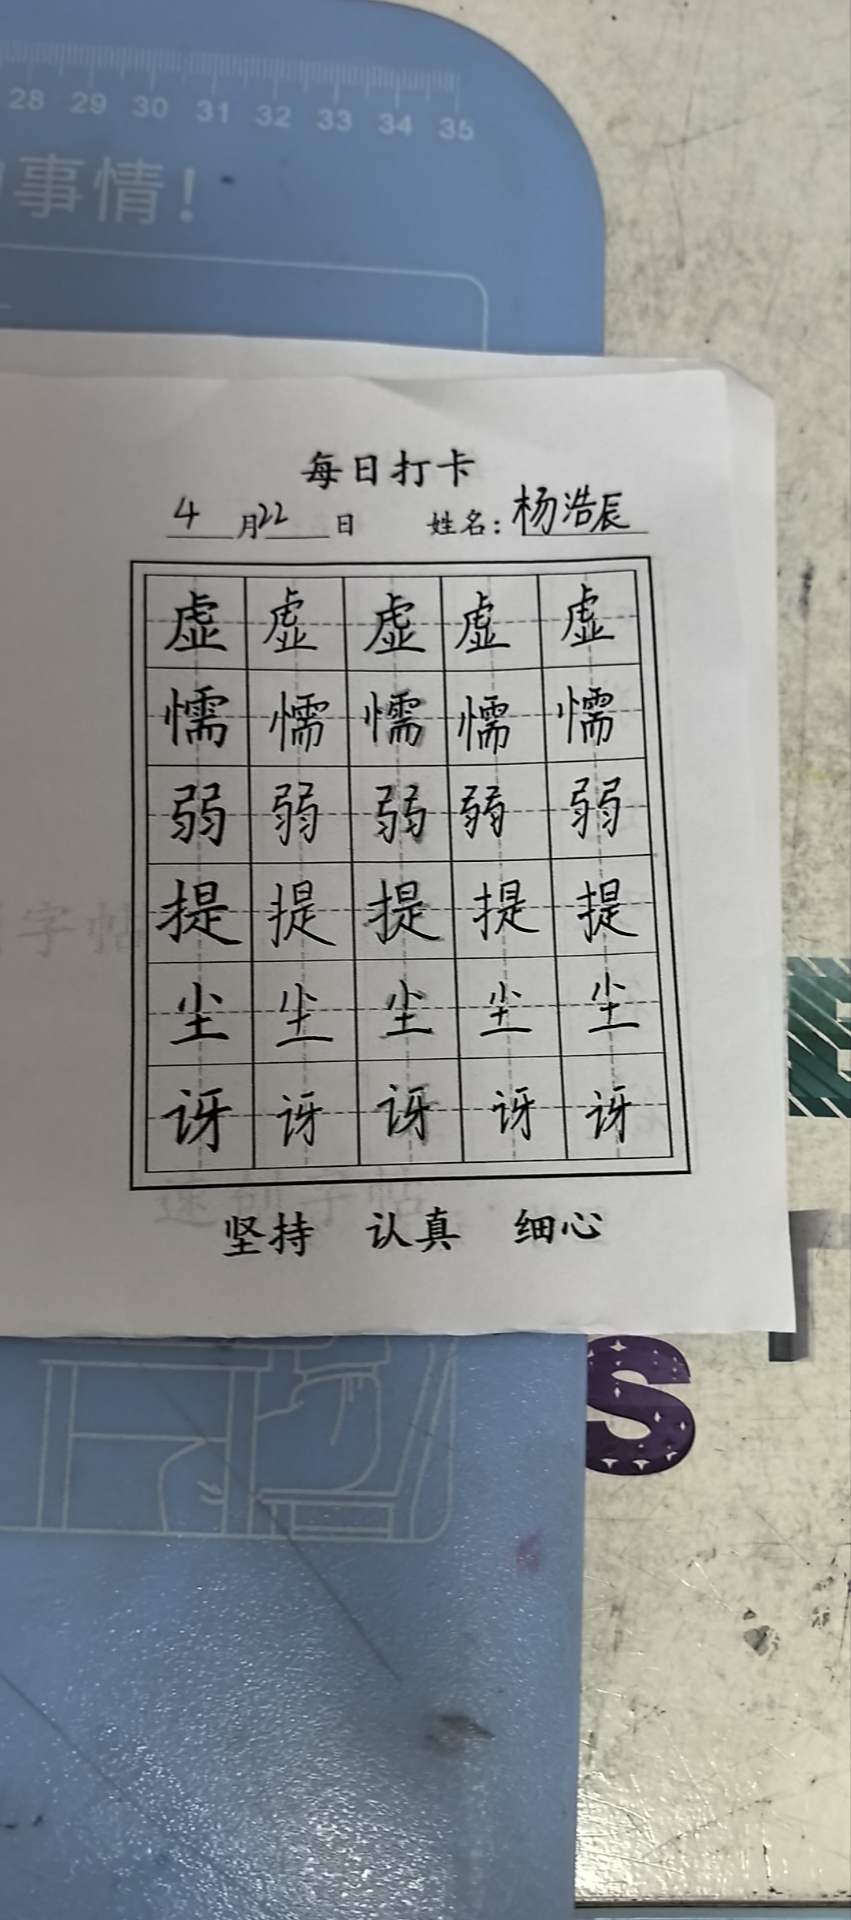 28 29 30 31 32 33 34 35
事情!
每日打卡
4月22日 姓名:杨浩辰
虚虚虚虚虚
懦懦懦懦懦
弱弱弱弱弱
字帖
提提提提提
尘尘尘尘尘
讶讶讶讶讶
字帖
坚持 认真 细心
S